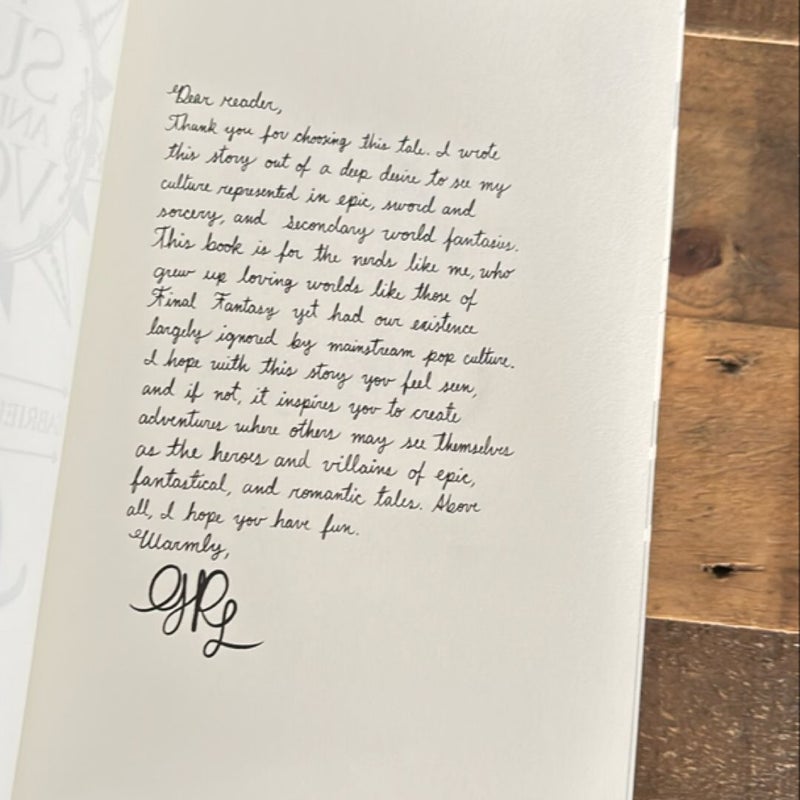 Dear reader,
Thank you for choosing this tale. I wrote
this story out of a deep desire to see my
culture represented in epic, sword and
sorcery, and secondary world fantasies.
This book is for the nerds like me, who
grew up loving worlds like those of
Final Fantasy yet had our existence
largely ignored by mainstream pop culture.
I hope with this story you feel seen,
and if not, it inspires you to create
adventures where others may see themselves
as the heroes and villains of epic,
fantastical, and romantic tales. Above
all, I hope you have fun.
Warmly,
GRL